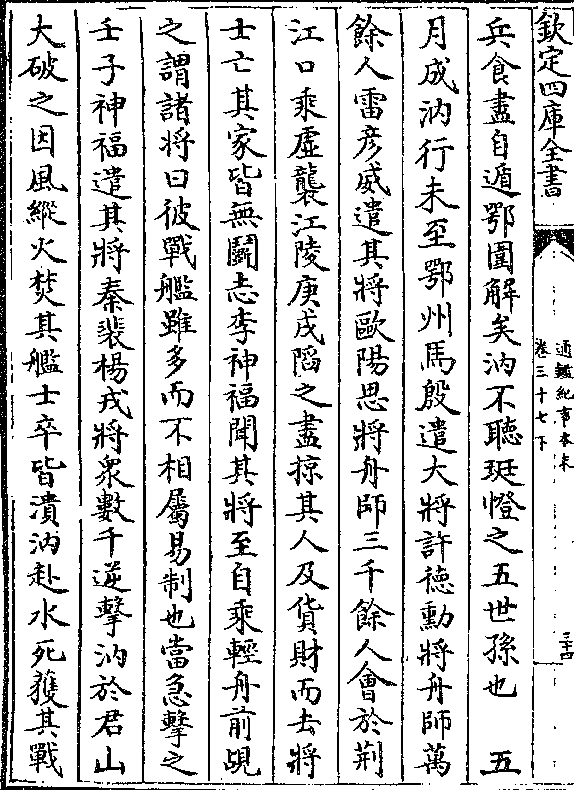 欽定四庫全書
通鑑紀事本末
卷三十七下
三十四
兵食盡自遁鄂圍解矣汭不聽珽憕之五世孫也　五
月成汭行未至鄂州馬殷遣大將許德勳將舟師萬
餘人雷彦威遣其將歐陽思將舟師三千餘人會於荆
江口乘虛襲江陵庚戌䧟之盡掠其人及貨財而去將
士亡其家皆無鬬志李神福聞其將至自乘輕舟前覘
之謂諸將曰彼戰艦雖多而不相屬易制也當急擊之
壬子神福遣其將秦裴楊戎將衆數千逆擊汭於君山
大破之因風縱火焚其艦士卒皆潰汭赴水死獲其戰